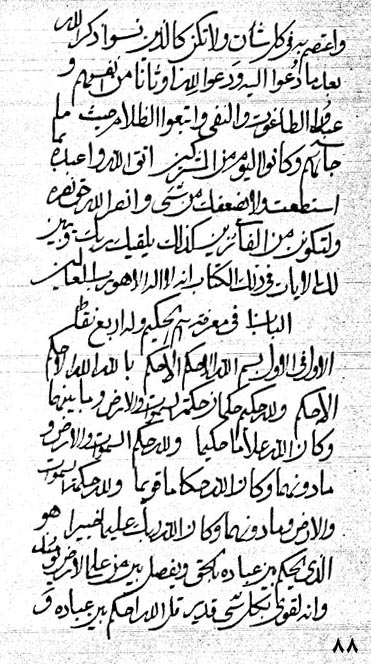 واعتصم به في كل شأن ولا تكن كالذين نسوا ذكر الله
بعد ما دعوا اليه ودعوا لله اوثانا من انفسهم و
عبدوا الطاغوت والنفي واتبعوا الظلام حيث ما
جائهم وكانوا اليوم من المشركين اتق الله واعبده بما
استطعت ولا تضعفك من شئ وانصر الله حق نصره
ولتكونن من الفائزين كذلك يلقيك ربك ويبين
لك الايات في ذلك الكتاب انه لا اله الا هو رب العالمين
الباب في معرفة اسم الحكيم وله اربع مقامات
الاول في الاول بسم الله الاحكم الاحكم بالله الله الاحكم
الاحكم ولله حكيم حكمان حكمة السموات والارض وما بينهما
وكان الله علاما حكيما ولله حكم السموات والارض و
ما دونهما وكان الله حكاما قويما ولله حكمة السموات
والارض وما دونهما وكان الله ربك عليما خبيرا هو
الذي يحكم بين عباده بالحق ويفصل بين من على الارض
وانه لقوي بكل شئ قدير قل الله احكم بين عباده و
٨٨